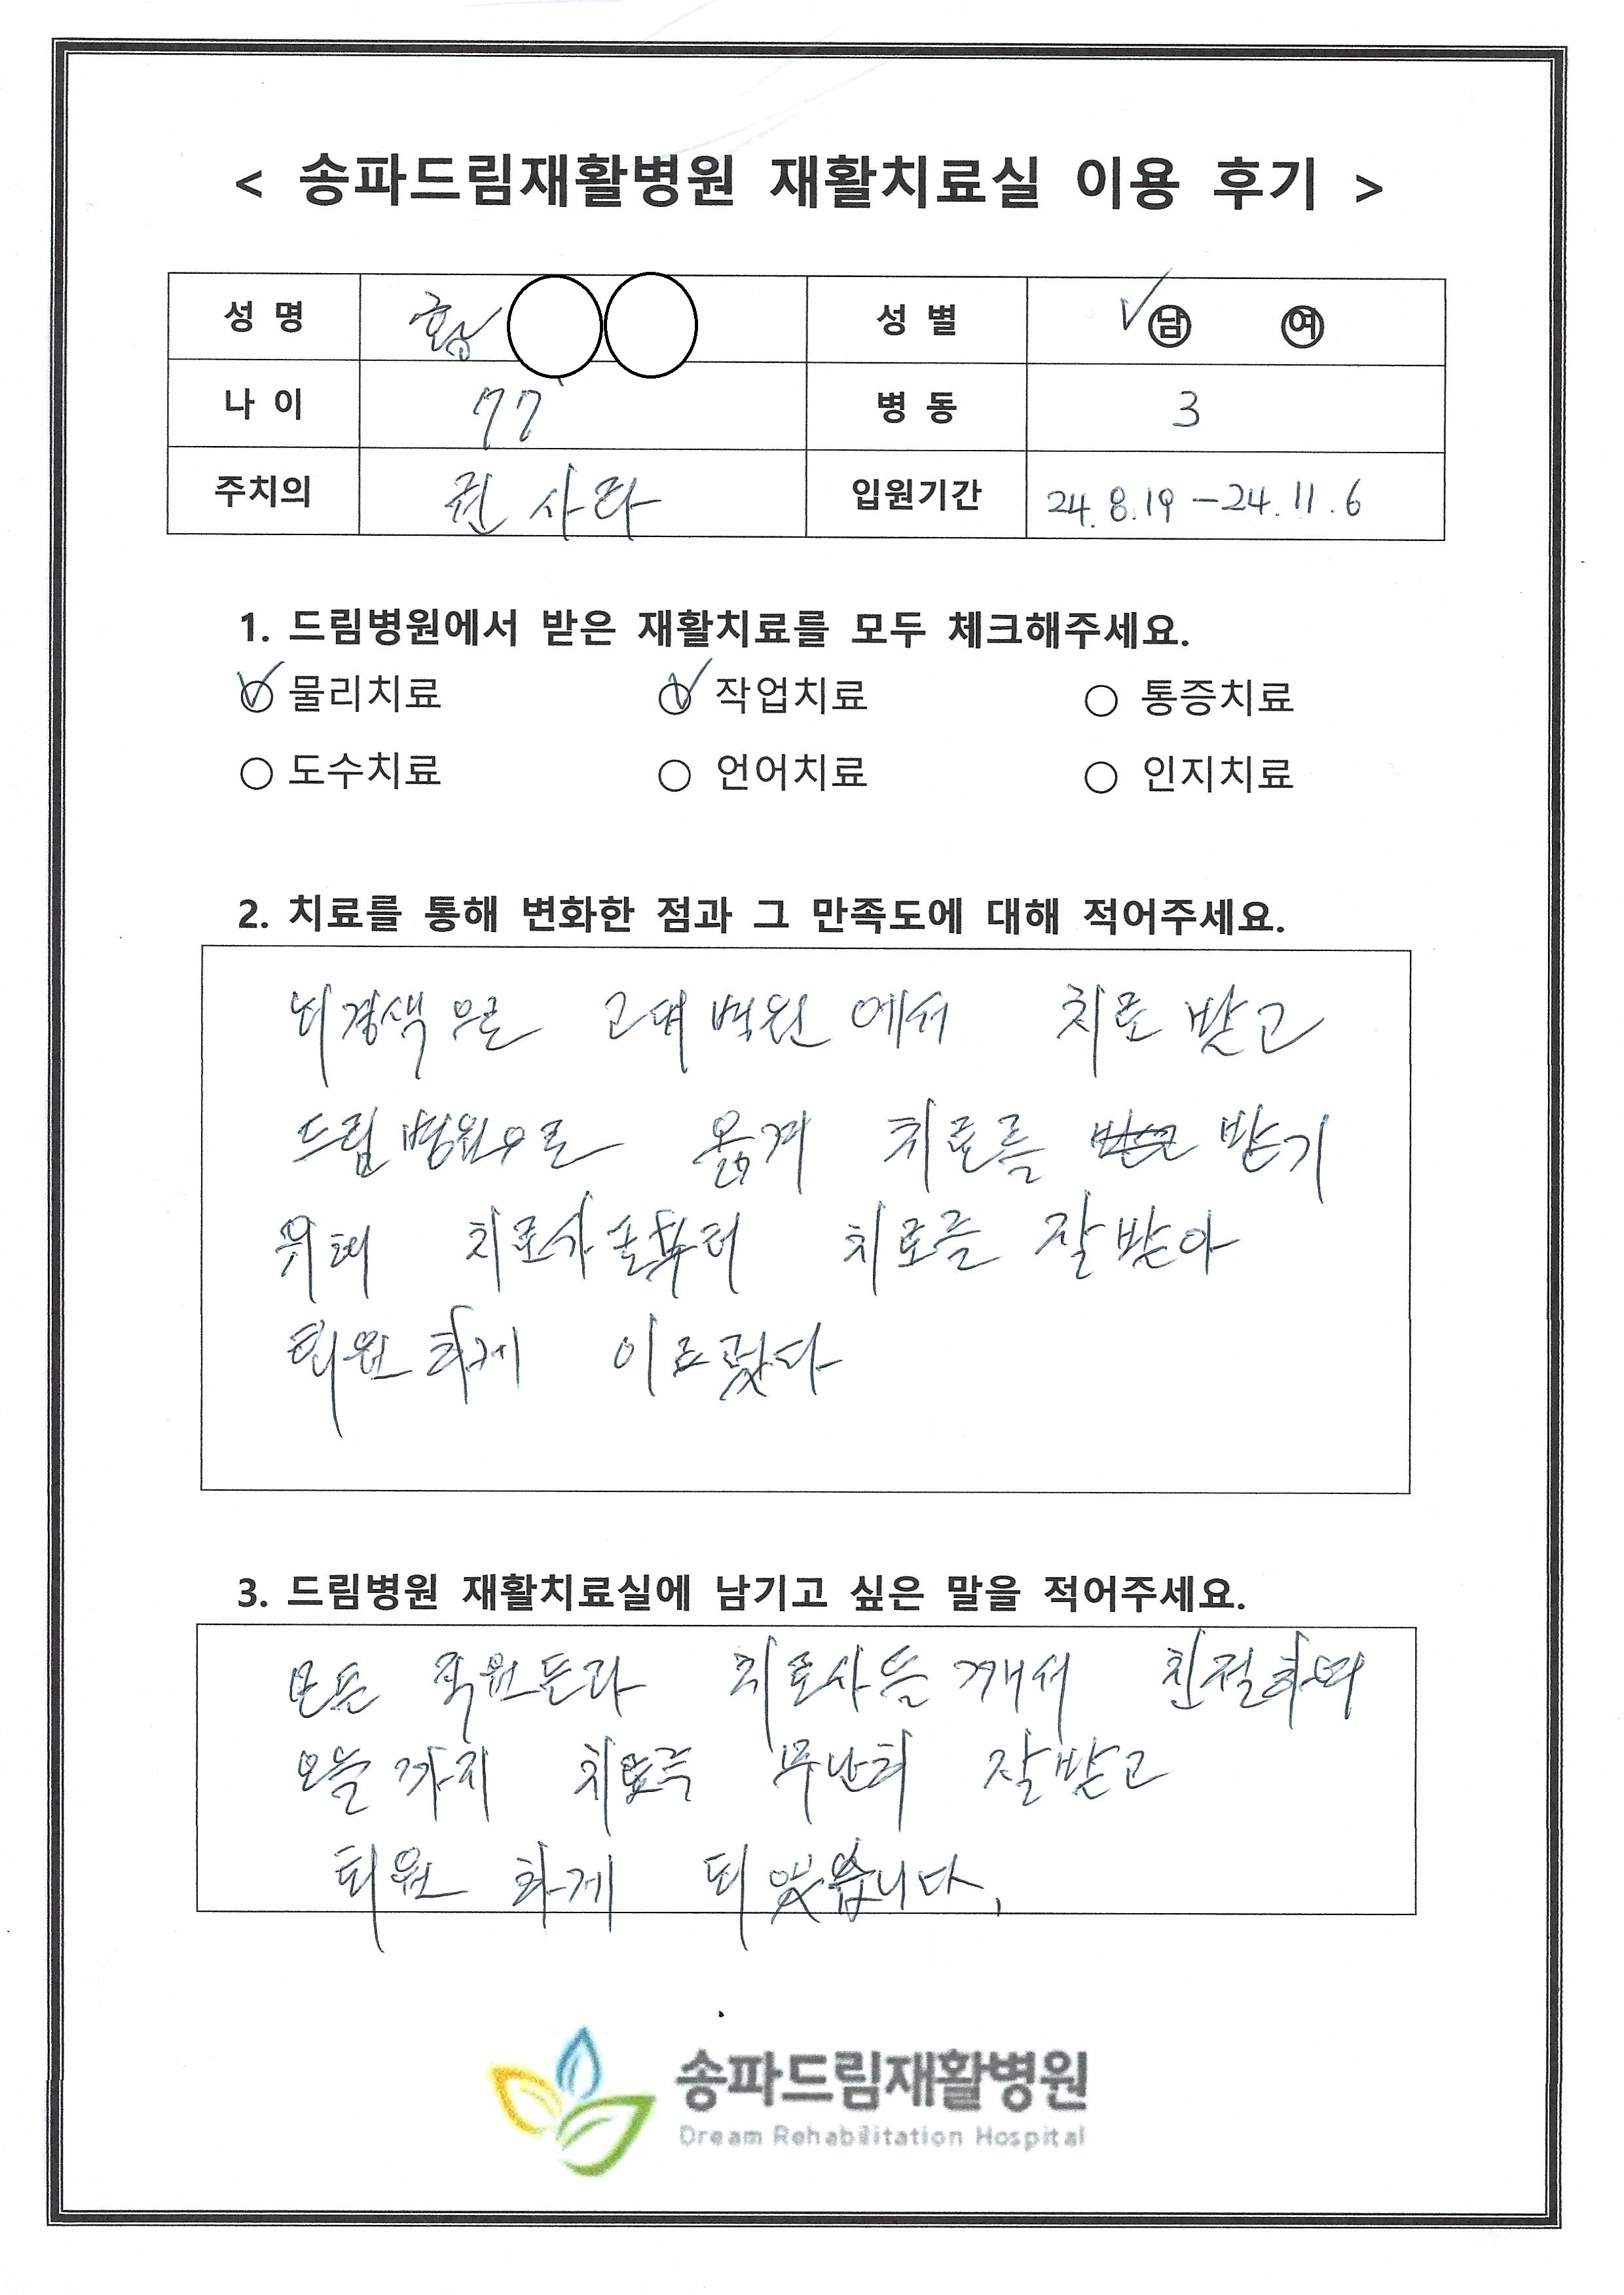 < 송파드림재활병원 재활치료실 이용 후기 >
성 명 황 성 별 남 여
나 이 77 병 동 3
주치의 권 사라 입원기간 24.8.19 - 24.11.6
1. 드림병원에서 받은 재활치료를 모두 체크해주세요.
물리치료 작업치료 통증치료
도수치료 언어치료 인지치료
2. 치료를 통해 변화한 점과 그 만족도에 대해 적어주세요.
뇌경색으로 고대병원에서 치료 받고
드림병원으로 옮겨 치료를 받기
위해 치료사 치료를 잘 받아
퇴원하게 이르렀다
3. 드림병원 재활치료실에 남기고 싶은 말을 적어주세요.
모든 직원들과 치료사들께서 친절하며
오늘까지 치료를 무난히 잘 받고
퇴원 하게 되었습니다.
송파드림재활병원
Dream Rehabilitation Hospital